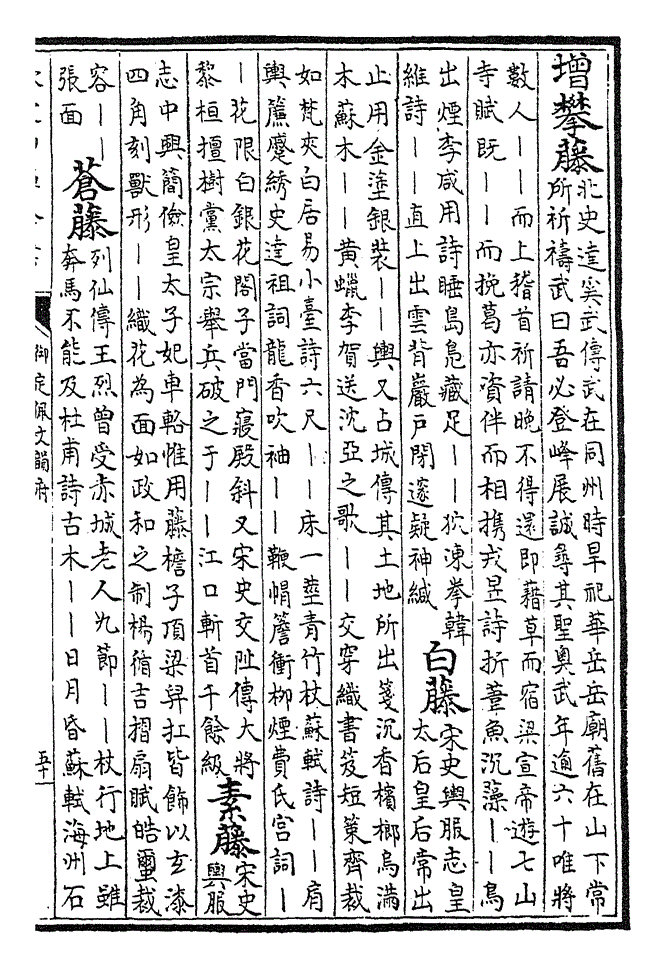 增攀藤
北史達奚武傳武在同州時旱祀華岳岳廟舊在山下常
所祈禱武曰吾必登峰展誠尋其聖奧武年逾六十唯將
數人——而上稽首祈請晚不得還即藉草而宿梁宣帝遊七山
寺賦既——而挽葛亦資伴而相攜戎昱詩折葦魚沉藻——鳥
出煙李咸用詩睡島鳬藏足——狖凍拳韓
維詩——直上出雲背巖戶閉邃疑神緘
白藤
宋史輿服志皇
太后皇后常出
止用金塗銀裝——輿又占城傳其土地所出箋沉香檳榔烏滿
木蘇木——黄蠟李賀送沈亞之歌——交穿織書笈短策齊裁
如梵夾白居易小臺詩六尺——床一莖青竹杖蘇軾詩——肩
輿簾蹙綉史達祖詞龍香吹袖——鞭帽簷衝柳煙費氏宮詞—
—花限白銀花閤子當門寢殿斜又宋史交阯傳大將
黎桓擅樹黨太宗舉兵破之于——江口斬首千餘級
素藤
宋史
輿服
志中興簡儉皇太子妃車輅惟用藤檐子頂梁舁扛皆飾以玄漆
四角刻獸形——織花為面如政和之制楊循吉摺扇賦皓璽裁
容——
張面
蒼藤
列仙傳王烈曾受赤城老人九節——杖行地上雖
奔馬不能及杜甫詩古木——日月昏蘇軾海州石
御定佩文韻府